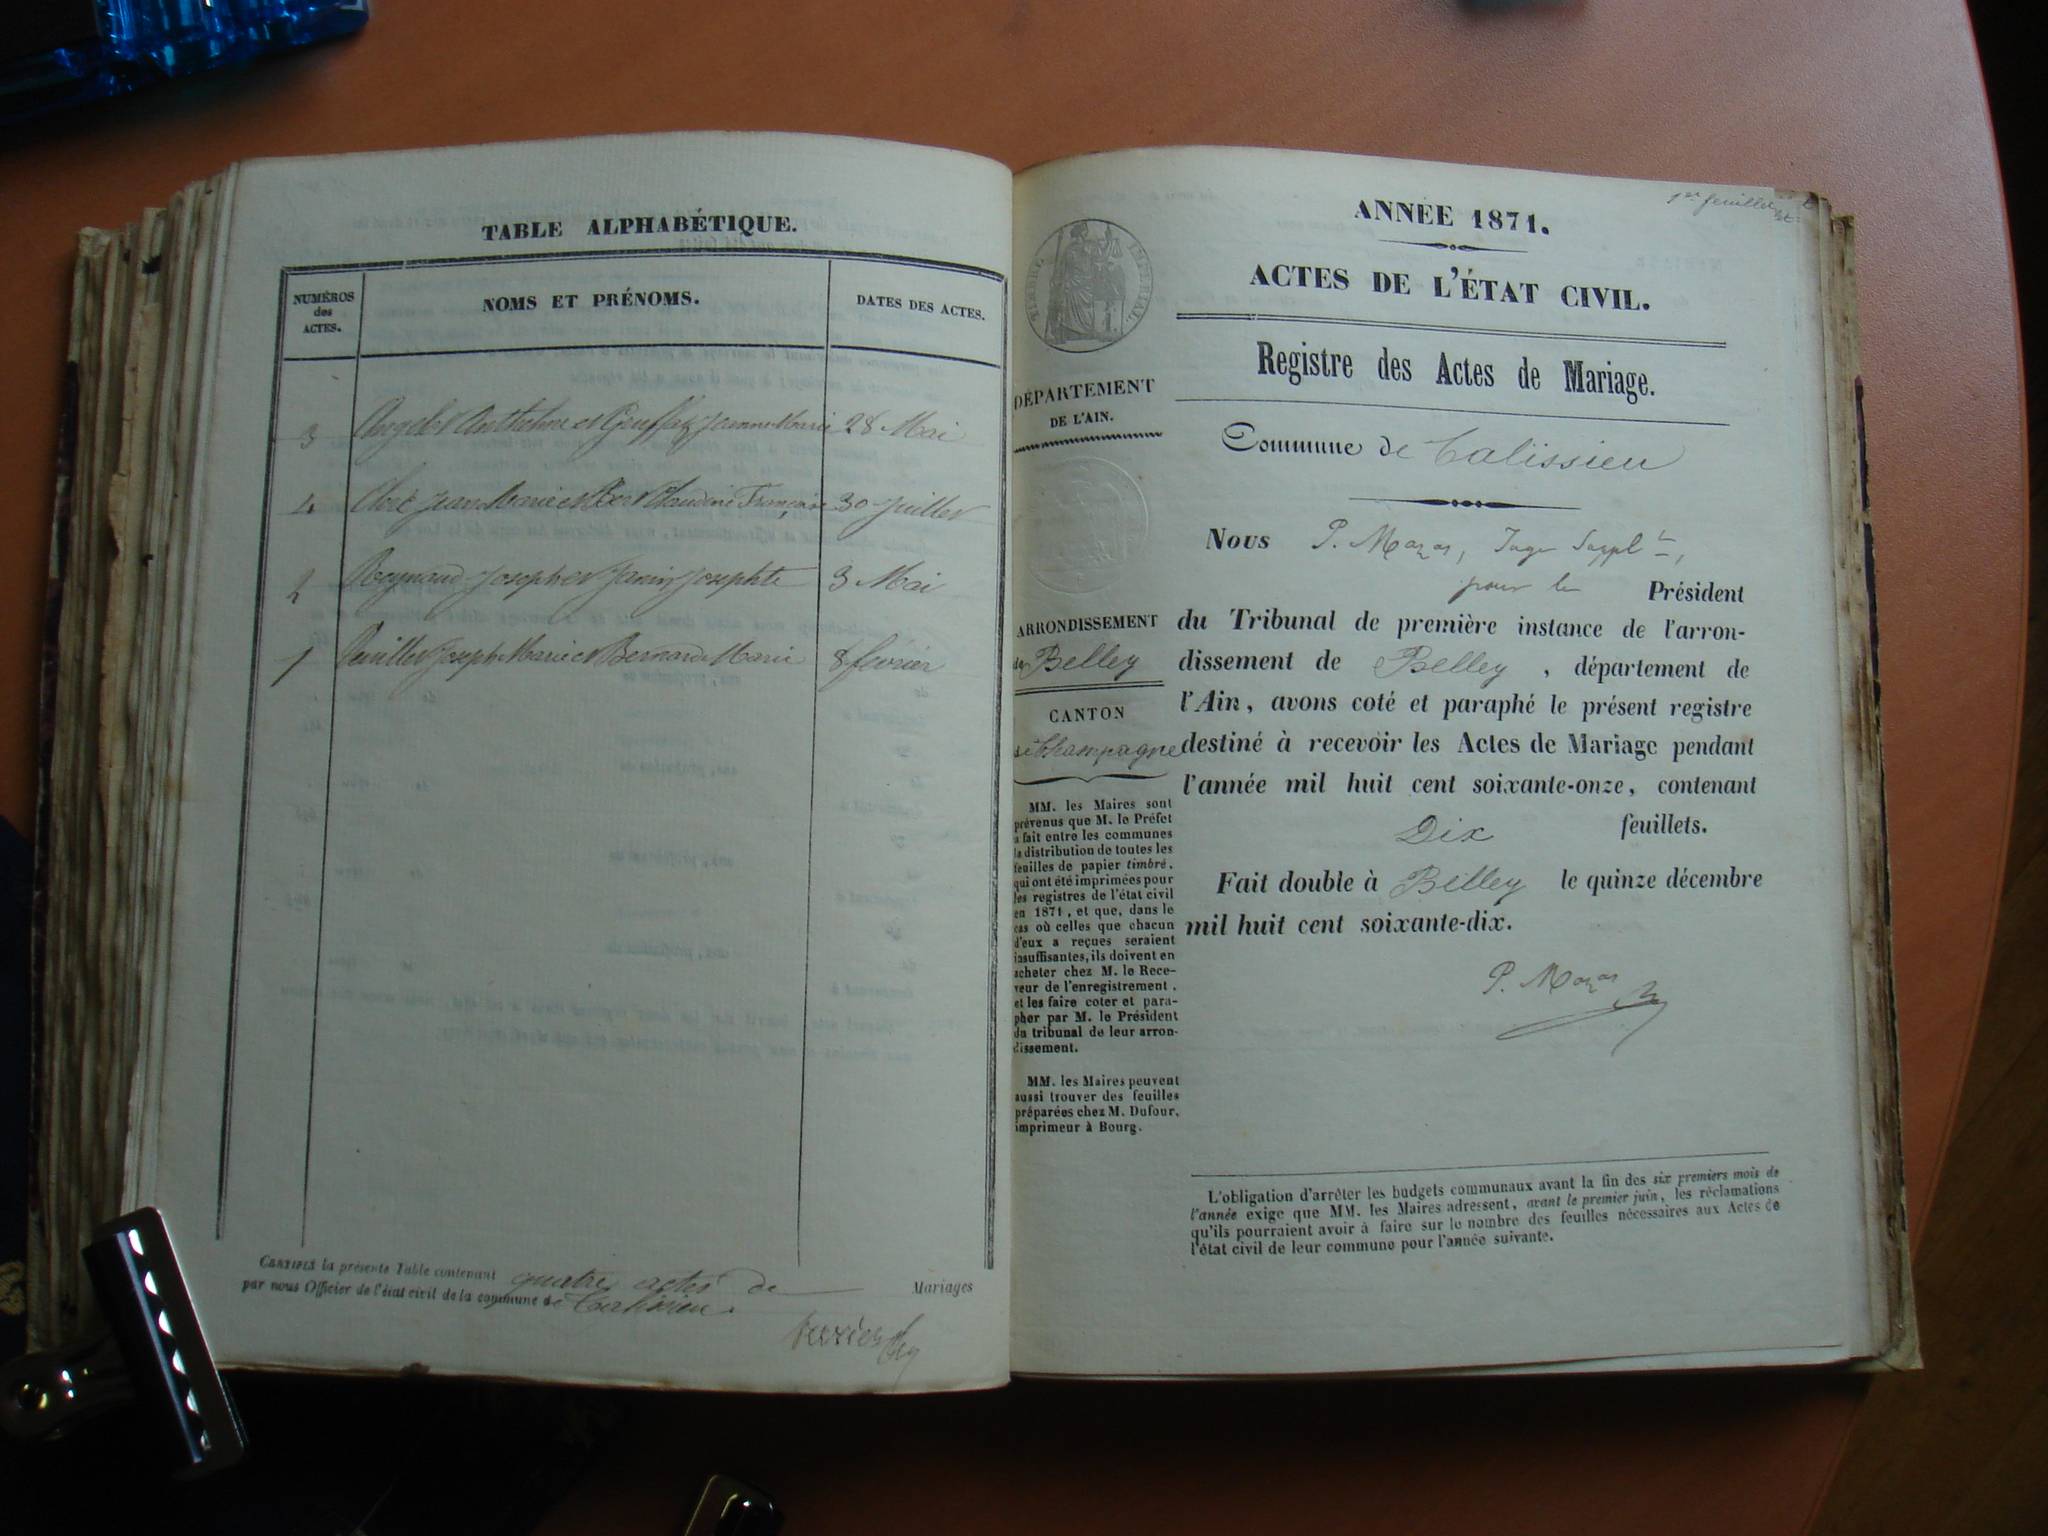 TABLE ALPHABÉTIQUE.
NUMÉROS
des
ACTES.
NOMS ET PRÉNOMS.
DATES DES ACTES.
3 Anthelme et Jeanne Marie 28 Mai
4 Jean Marie et Claudine Françoise 30 Juillet
2 Reynaud Joseph et Janin Josephte 3 Mai
1 Joseph Marie et Bernard Marie 8 février
CERTIFIÉ la présente Table contenant quatre actes de Mariages
par nous Officier de l'état civil de la commune de Talissieu.
1er feuillet
ANNÉE 1871.
ACTES DE L'ÉTAT CIVIL.
Registre des Actes de Mariage.
TIMBRE IMPÉRIAL
DÉPARTEMENT
DE L'AIN.
Commune de Talissieu
ARRONDISSEMENT
de Belley
CANTON
de Champagne
MM. les Maires sont
prévenus que M. le Préfet
a fait entre les communes
la distribution de toutes les
feuilles de papier timbré,
qui ont été imprimées pour
les registres de l'état civil
en 1871, et que, dans le
cas où celles que chacun
d'eux a reçues seraient
insuffisantes, ils doivent en
acheter chez M. le Rece-
veur de l'enregistrement,
et les faire coter et para-
pher par M. le Président
du tribunal de leur arron-
dissement.
MM. les Maires peuvent
aussi trouver des feuilles
préparées chez M. Dufour,
imprimeur à Bourg.
Nous P. Mazas, Juge Supplt,
pour le Président
du Tribunal de première instance de l'arron-
dissement de Belley, département de
l'Ain, avons coté et paraphé le présent registre
destiné à recevoir les Actes de Mariage pendant
l'année mil huit cent soixante-onze, contenant
Dix feuillets.
Fait double à Belley le quinze décembre
mil huit cent soixante-dix.
P. Mazas
L'obligation d'arrêter les budgets communaux avant la fin des six premiers mois de
l'année exige que MM. les Maires adressent, avant le premier juin, les réclamations
qu'ils pourraient avoir à faire sur le nombre des feuilles nécessaires aux Actes de
l'état civil de leur commune pour l'année suivante.